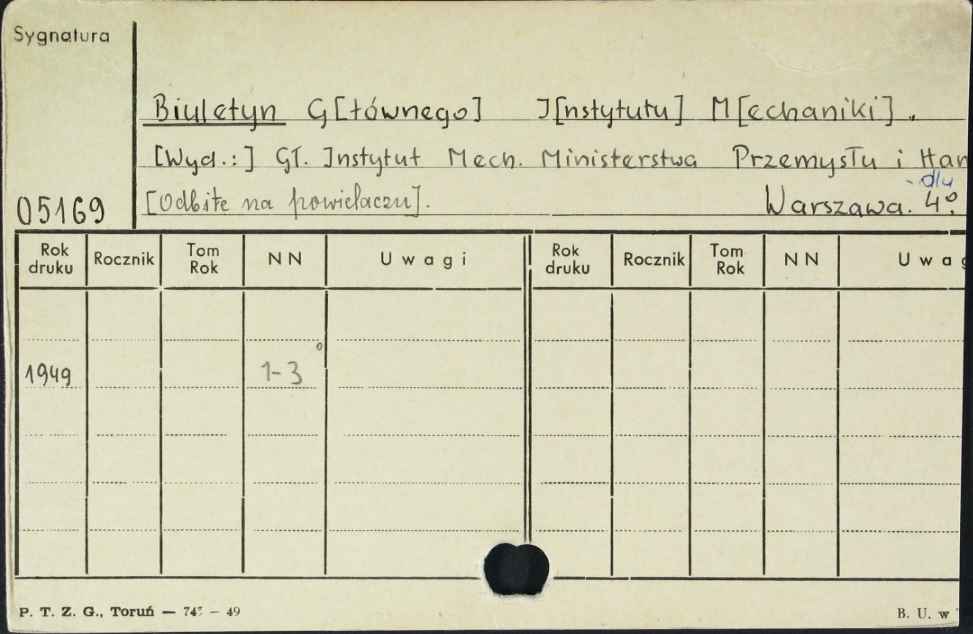 Sygnatura
Biuletyn G[łównego] I[nstytutu] M[echaniki].
[Wyd.:] Gł. Instytut Mech. Ministerstwa Przemysłu i Han
-dlu
05169 [Odbite na powielaczu]. Warszawa. 4°.
Rok druku Rocznik Tom Rok NN Uwagi Rok druku Rocznik Tom Rok NN Uwag
1949 1-3
P. T. Z. G., Toruń — 49
B. U. w